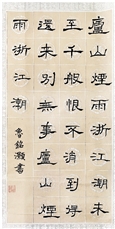 廬山煙雨浙江潮未
至千般恨不消到得
還來別無事廬山煙
雨浙江潮
銘灝書